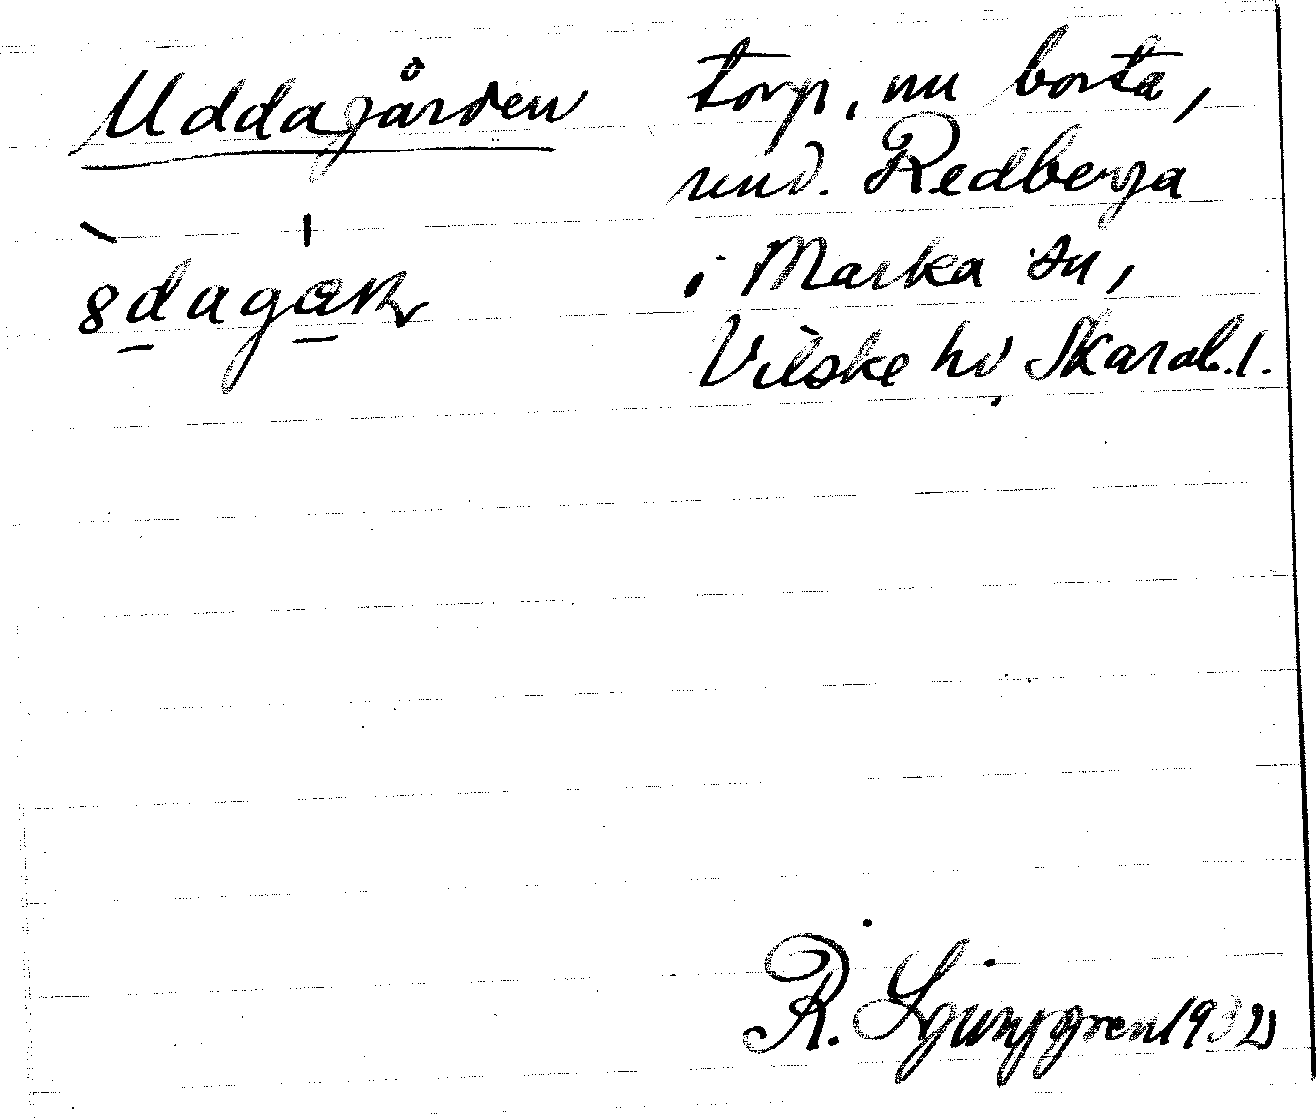 Uddagården
torp, nu borta,
und. Redberga
i Marka sn,
Vilske hd Skarab. l.
R. Ljunggren 1932